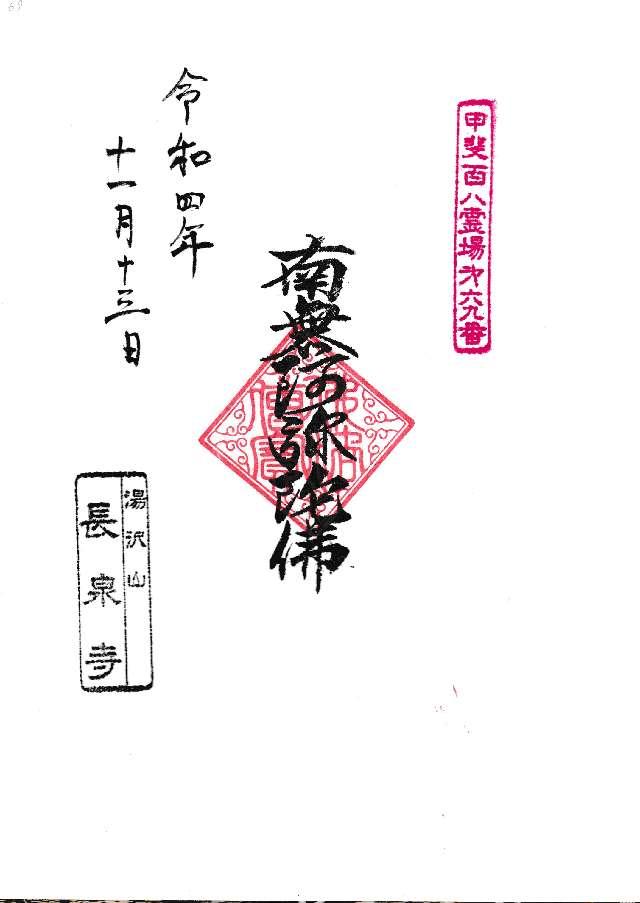 甲斐百八霊場第六九番
南無阿弥陀佛
佛法
僧寳
令和四年
十一月十三日
湯沢山
長泉寺
69